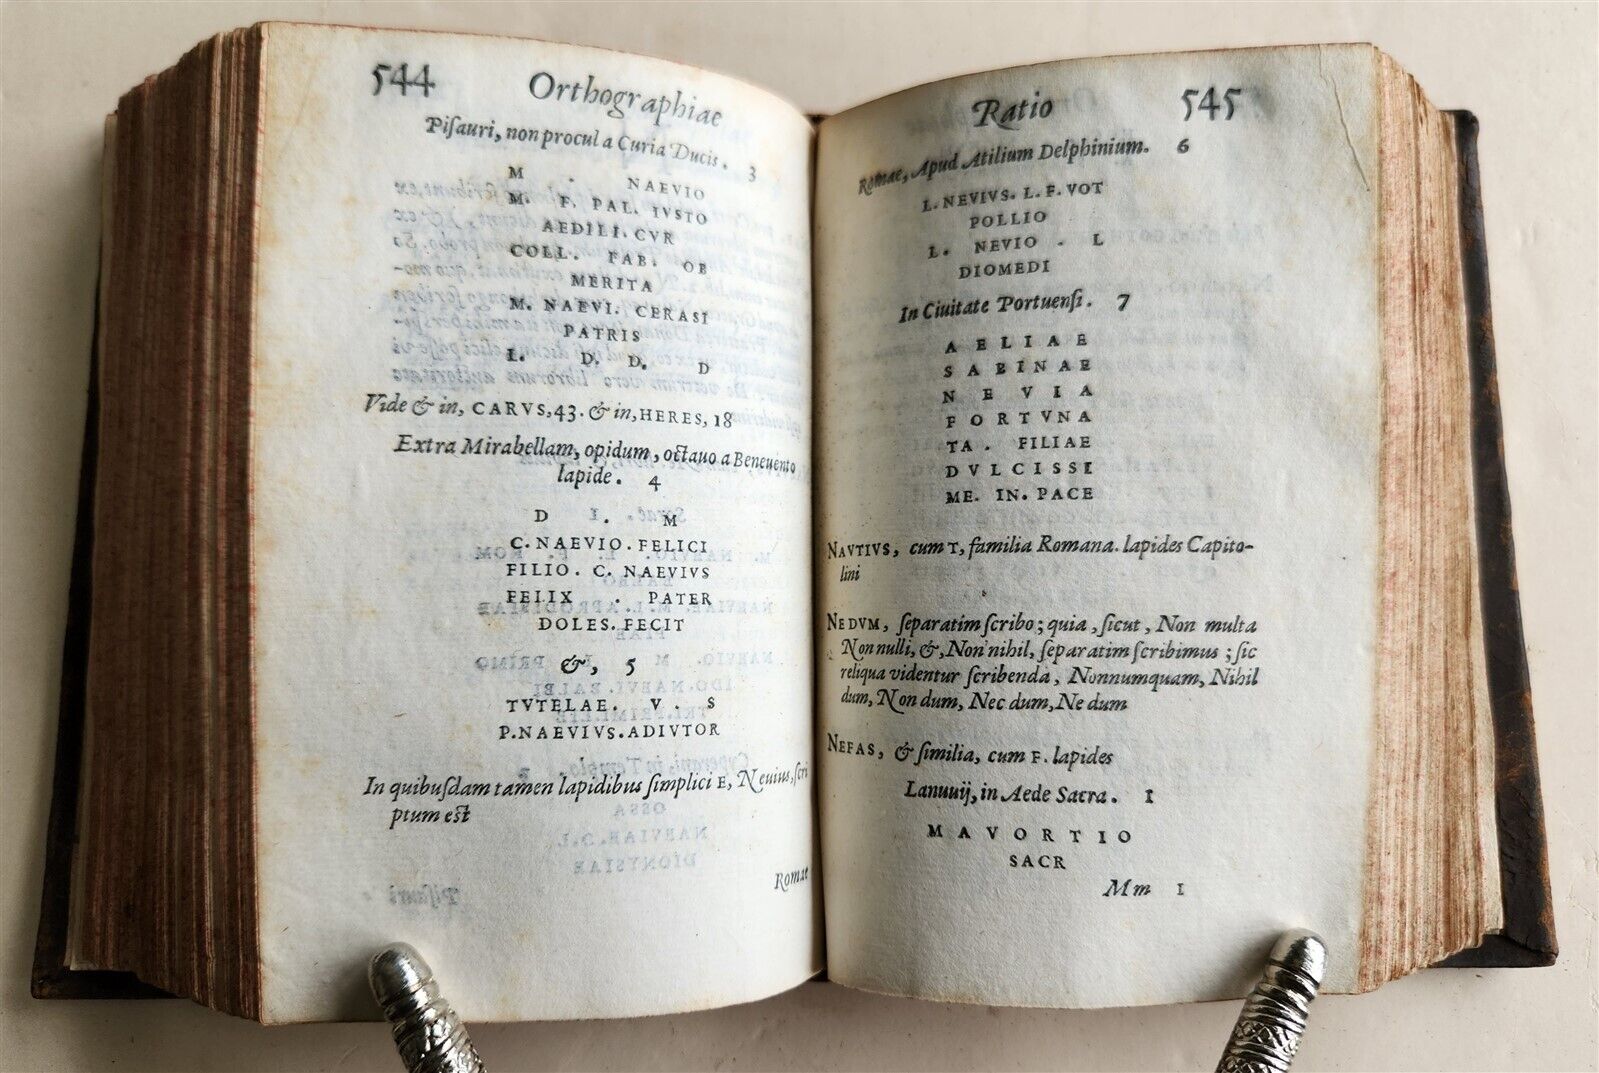 544 Orthographiae
Piſauri, non procul a Curia Ducis. 3
M . NAEVIO
M. F. PAL. IVSTO
AEDILI. CVR
COLL. FAB. OB
MERITA
M. NAEVI. CERASI
PATRIS
L. D. D. D
Vide & in, CARVS, 43. & in, HERES, 18
Extra Mirabellam, opidum, octauo a Beneuento
lapide. 4
D . M
C. NAEVIO. FELICI
FILIO. C. NAEVIVS
FELIX . PATER
DOLES. FECIT
&, 5
TVTELAE. V. S
P. NAEVIVS. ADIVTOR
In quibuſdam tamen lapidibus ſimplici E, Neuius, ſcri
ptum est
Romae
Ratio 545
Romae, Apud Atilium Delphinium. 6
L. NEVIVS. L. F. VOT
POLLIO
L. NEVIO . L
DIOMEDI
In Ciuitate Portuenſi. 7
AELIAE
SABINAE
NEVIA
FORTVNA
TA. FILIAE
DVLCISSI
ME. IN. PACE
NAVTIVS, cum T, familia Romana. lapides Capito-
lini
NEDVM, ſeparatim ſcribo; quia, ſicut, Non multa
Non nulli, &, Non nihil, ſeparatim ſcribimus; ſic
reliqua videntur ſcribenda, Nonnumquam, Nihil
dum, Non dum, Nec dum, Ne dum
NEFAS, & ſimilia, cum F. lapides
Lanuuij, in Aede Sacra. 1
MAVORTIO
SACR
Mm 1